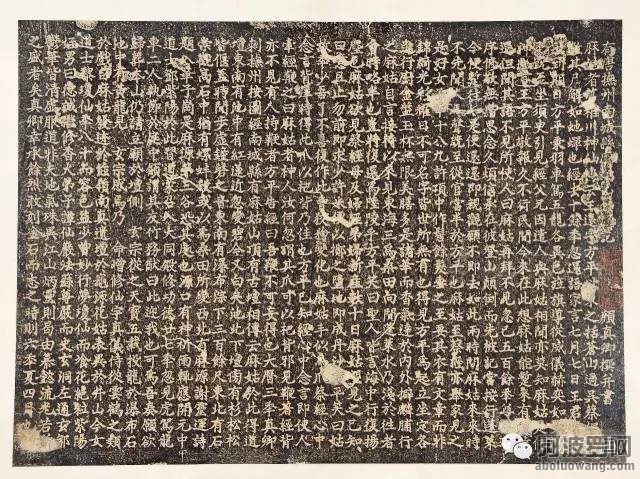 有唐撫州南城縣 記 顏真卿撰并書
麻姑者葛稚川神仙傳云王 字方平欲 之括蒼山過吳蔡
其尸解如蛇蟬也經 餘年忽還語家言七月七日王君
日方平乘羽車駕五龍各異色旌旗導從威儀赫弈如
至坐須臾引見經父兄因遣人與麻姑相聞亦莫知麻
言王方平敬報久不行民間今來在此想麻姑能暫來有
還但聞其語不見所使人曰麻姑再拜不見忽已五百餘年尊
序修敬無階思念久煩信承在彼登山顛倒而先被記當按行蓬萊
今便暫往如是便還還即親觀願不即去如此兩時間麻姑來來時
不先聞人馬聲既至從官當半於方平也麻姑至蔡經亦舉家見之
是好女子年十八九許頂中作髻餘髮垂之至要其衣有文章而非
錦綺光彩耀日不可名字皆世所無有也得見方平方平為起立坐定各
進行廚金盤玉杯無限美膳多是諸華而香氣達於內外擗麟脯行
之麻姑自言接待以來見東海三為桑田向間蓬萊水乃淺於往者
會時略半也豈將復還為陸陵乎方平笑曰聖人皆言海中行復揚
麻姑欲見蔡經母及婦經弟婦新產數十日麻姑望見之已知
曰噫且止勿前即求少許米便以擲之墮地即成丹沙方平笑曰姑
故年少吾了不喜復作此曹狡獪變化也麻姑手似鳥爪蔡經心中
念言背癢時得此爪以杷背乃佳也方平已知經心中念言即使人
牽經鞭之曰麻姑者神人汝何忽謂其爪可以杷背耶見鞭著經背
亦不見有人持鞭者方平告經曰吾鞭不可妄得也大曆三年真卿
刺撫州按圖經南城縣有麻姑山頂有古壇相傳云麻姑於此得道
壇東南有池中有紅蓮近忽變碧今又白矣池北下壇傍有杉松松
皆偃蓋時聞步虛鐘磬之音東南有瀑布淙下三百餘尺東北有石
崇觀高石中猶有螺蚌殼或以為桑田所變西北有麻源謝靈運詩
題入華子崗是麻源第三谷恐其處也源口有神祈雨輒應開元中
道士鄧紫陽於此習道蒙召入大同殿修功德廿七年忽見虎駕龍
車二人執節於庭中顧謂其友竹務猷曰此迎我也可為吾奏願欲
歸葬本山仍請立廟於壇側 玄宗從之天寶五載投龍於瀑布石
池中有黃龍見 玄宗感焉乃 命增修仙宇真儀侍從雲鶴之類
於戲自麻姑發跡於茲嶺南真遺壇於龜源花姑表異於井山今女
道士黎瓊仙年八十而容色益少曾妙行夢瓊仙而餐花絕粒紫陽
姪男曰德誠繼修香火弟子譚仙巖法籙尊嚴而史玄洞左通玄鄒
鬱華皆清虛服道非夫地氣殊異江山炳靈則曷由纂懿流光若斯
之盛者矣真卿幸承餘烈敢刻金石而志之時則六年夏四月也
阿波罗网
aboluowang.com